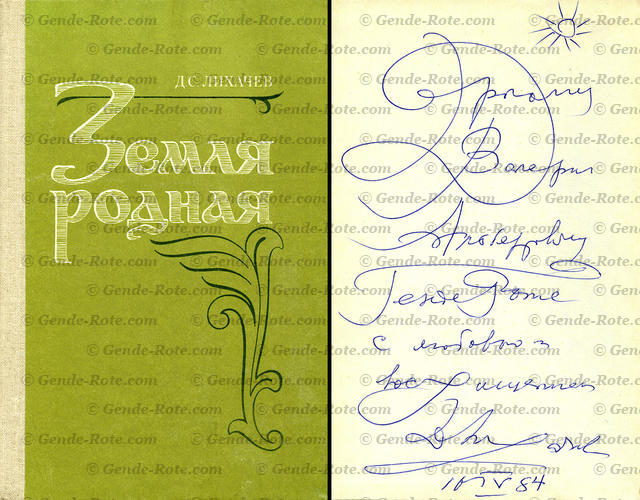 Д.С. ЛИХАЧЕВ
Земля
родная
Дорогому
Валерию
Альбертовичу
Генде Роте
с любовью и
восхищением
10 IV 84
© Gende-Rote.com